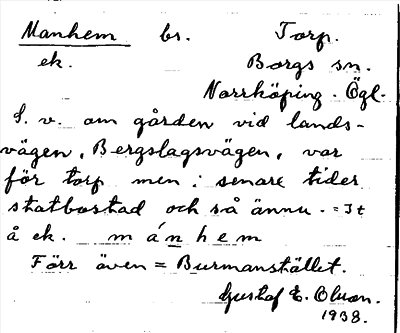 Manhem br. Torp.
ek. Borgs sn.
Norrköping. Ögl.
S. v. om gården vid lands-
vägen, Bergslagsvägen, var
för torp men i senare tider
statbostad och så ännu. = It
å ek. m á n h e m
Förr även = Burmanstället.
Gustaf E. Olson.
1938.